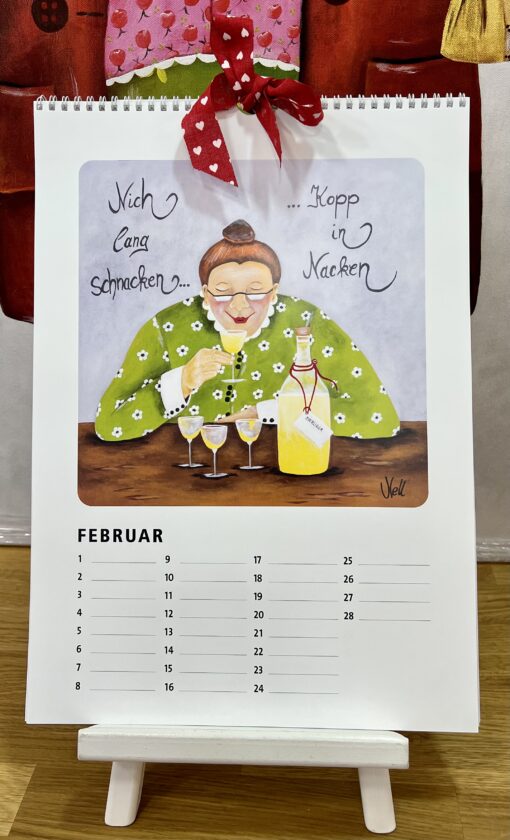 Nich
lang
schnacken...
... Kopp
in
Nacken
EIERLIKÖR
Nell
FEBRUAR
1
2
3
4
5
6
7
8
9
10
11
12
13
14
15
16
17
18
19
20
21
22
23
24
25
26
27
28